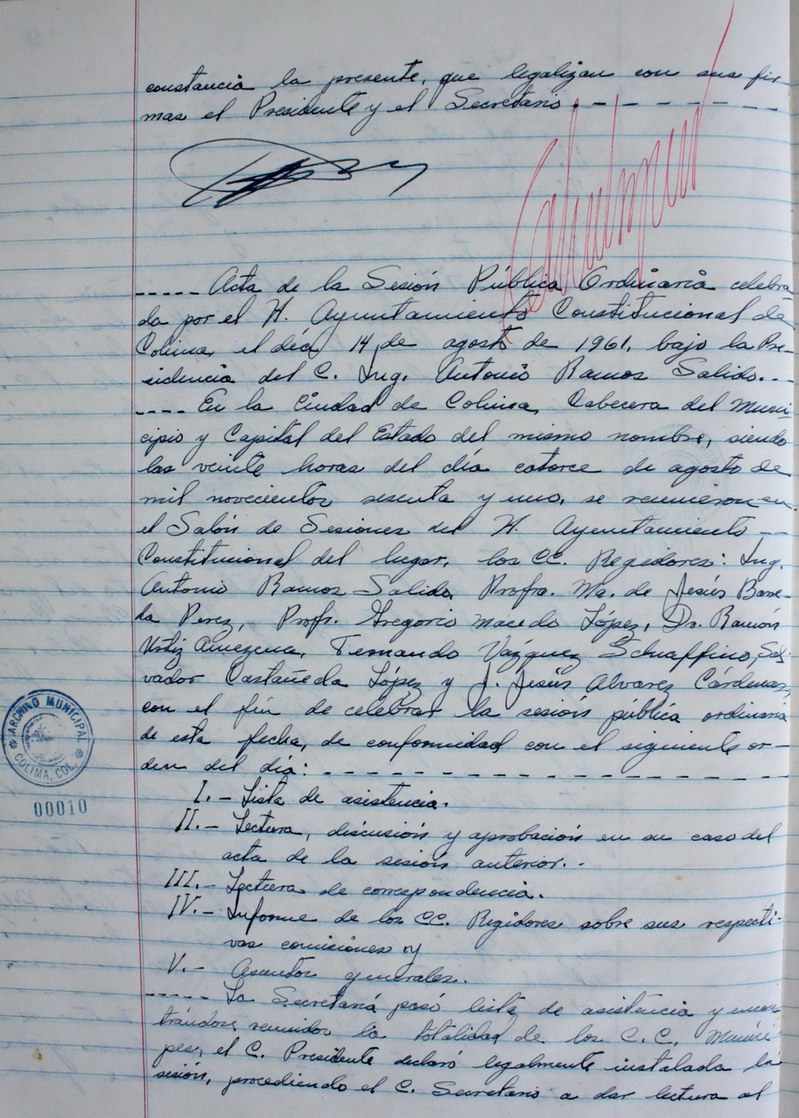 constancia la presente, que legalizan con sus fir
mas el Presidente y el Secretario. - - - - - - -
- - - - Acta de la Sesión Pública Ordinaria celebra
da por el H. Ayuntamiento Constitucional de
Colima, el día 14 de agosto de 1961, bajo la Pre-
sidencia del C. Ing. Antonio Ramos Salido. - -
- - - - En la Ciudad de Colima, Cabecera del Muni-
cipio y Capital del Estado del mismo nombre, siendo
las veinte horas del día catorce de agosto de
mil novecientos sesenta y uno, se reunieron en
el Salón de Sesiones del H. Ayuntamiento - -
Constitucional del lugar, los CC. Regidores: Ing.
Antonio Ramos Salido, Profra. Ma. de Jesús Barre-
da Perez, Profr. Gregorio Macedo López, Dr. Ramón
Amezcua, Fernando Vazquez Schiaffino, Sal-
vador Castañeda López y J. Jesús Alvarez Cárdenas,
con el fín de celebrar la sesión pública ordinaria
de esta fecha, de conformidad con el siguiente or-
den del día: - - - - - - - - - - - - - - - - - -
I. - Lista de asistencia.
II. - Lectura, discusión y aprobación en su caso del
acta de la sesión anterior. -
III. - Lectura de correpondencia.
IV. - Informe de los CC. Regidores sobre sus respecti-
vas comisiones y
V. - Asuntos generales.
- - - - - La Secretaría pasó lista de asistencia y encon
trándose reunidos la totalidad de los C.C. Muníci
pes, el C. Presidente declaró legalmente instalada la
sesión, procediendo el C. Secretario a dar lectura al
ARCHIVO MUNICIPAL
COLIMA, COL.
00010